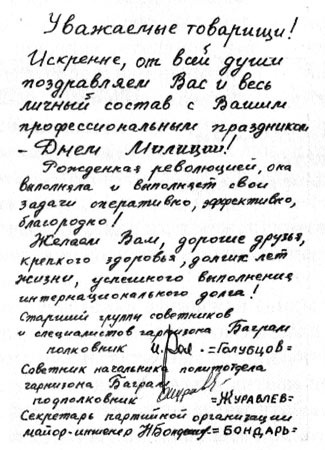 Уважаемые товарищи!
Искренне, от всей души
поздравляем Вас и весь
личный состав с Вашим
профессиональным праздником
- Днем Милиции!
Рожденная революцией, она
выполняла и выполняет свои
задачи оперативно, эффективно,
благородно!
Желаем Вам, дорогие друзья,
крепкого здоровья, долгих лет
жизни, успешного выполнения
интернационального долга!
Старший группы советников
и специалистов гарнизона Баграм
полковник =ГОЛУБЦОВ=
Советник начальника политотдела
гарнизона Баграм
подполковник =ЖУРАВЛЕВ=
Секретарь партийной организации
майор-инженер =БОНДАРЬ=